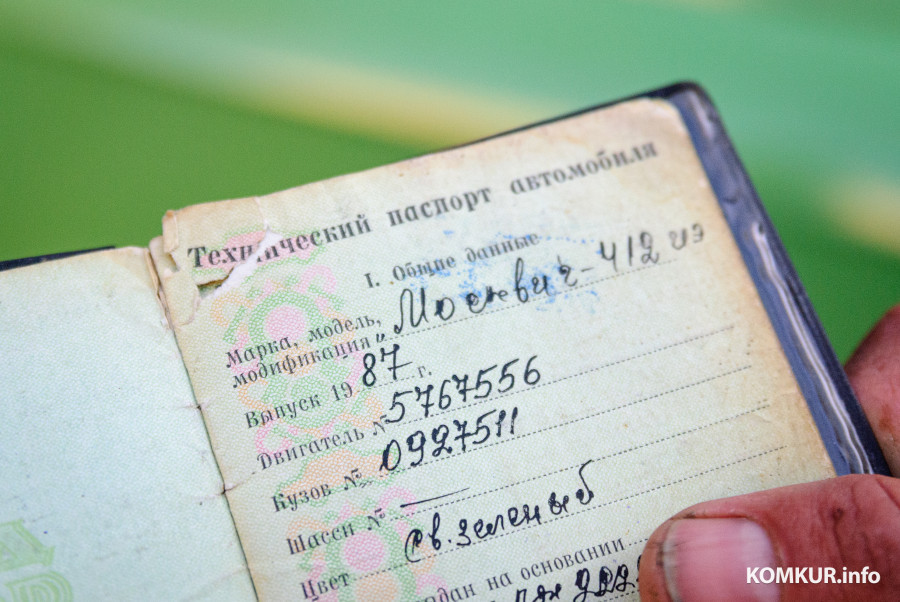 Технический паспорт автомобиля
I. Общие данные
Марка, модель,
модификация „Москвич-412 иэ
Выпуск 1987 г.
Двигатель № 5767556
Кузов № 0927511
Шасси № —
Цвет св. зеленый
на основании
KOMKUR.info